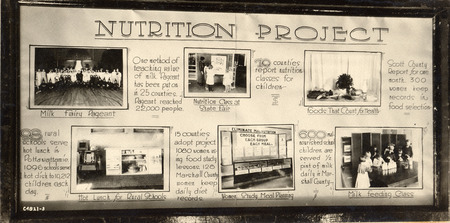 NUTRITION PROJECT
One method of
teaching value
of milk. Pageant
has been put on
in 25 counties.
Pageant reached
25,000 people.
Milk Fairy Pageant
Nutrition Class at
State Fair
19 counties
report nutrition
classes for
children
Foods That Count for Health
Scott County
Report for one
month 300
women keep
records in
food selection
98 rural
schools serve
hot lunch.
Pottawattamie
1096 school
hot dish to
children each
day.
Hot Lunch for Rural Schools
15 counties
adopt project
1080 women
ing food study
lessons
Marshall
County women keep
daily diet
records
ELIMINATE MALNUTRITION
CHOOSE FOOD
EACH GROUP
EACH MEAL
Women Study Meal Planning
600
nourished school
children are
served ½
pint of milk
daily in
Marshall
County
Milk Feeding Class